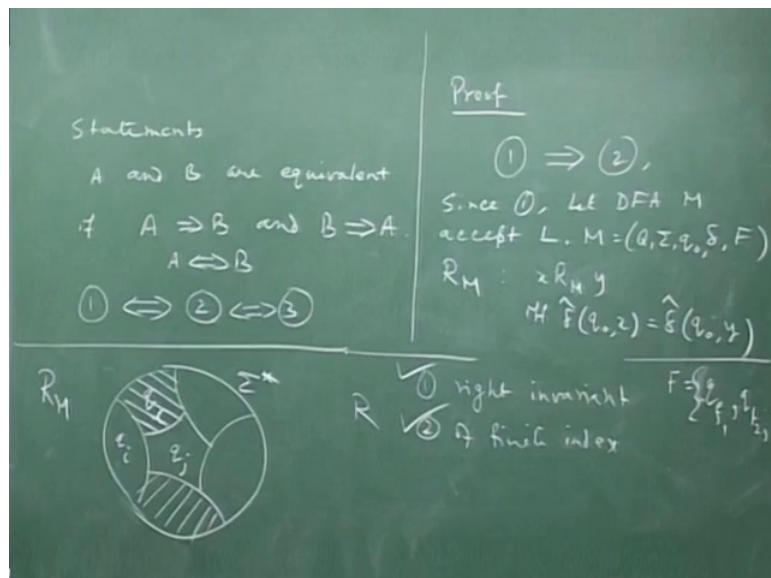 Statements
A and B are equivalent
if A ⇒ B and B ⇒ A.
A ⇔ B
① ⇔ ② ⇔ ③
Proof
① ⇒ ②,
Since ①, Let DFA M
accept L. M = (Q, Σ, q₀, δ, F)
R_M : x R_M y
iff δ̂(q₀, x) = δ̂(q₀, y)
R_M
Σ*
q_i
q_j
R ① right invariant
② of finite index
F = {q_f₁, q_f₂,